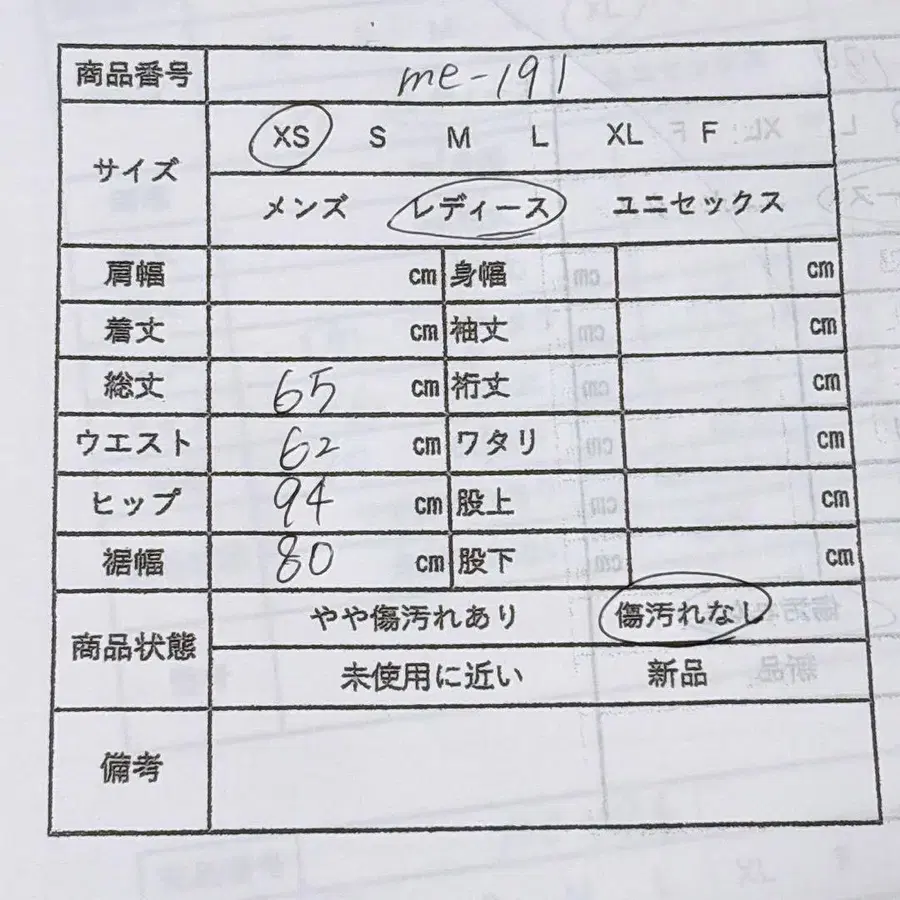 商品番号 me-191
サイズ XS S M L XL F
メンズ レディース ユニセックス
肩幅 cm 身幅 cm
着丈 cm 袖丈 cm
総丈 65 cm 裄丈 cm
ウエスト 62 cm ワタリ cm
ヒップ 94 cm 股上 cm
裾幅 80 cm 股下 cm
商品状態 やや傷汚れあり 傷汚れなし
未使用に近い 新品
備考